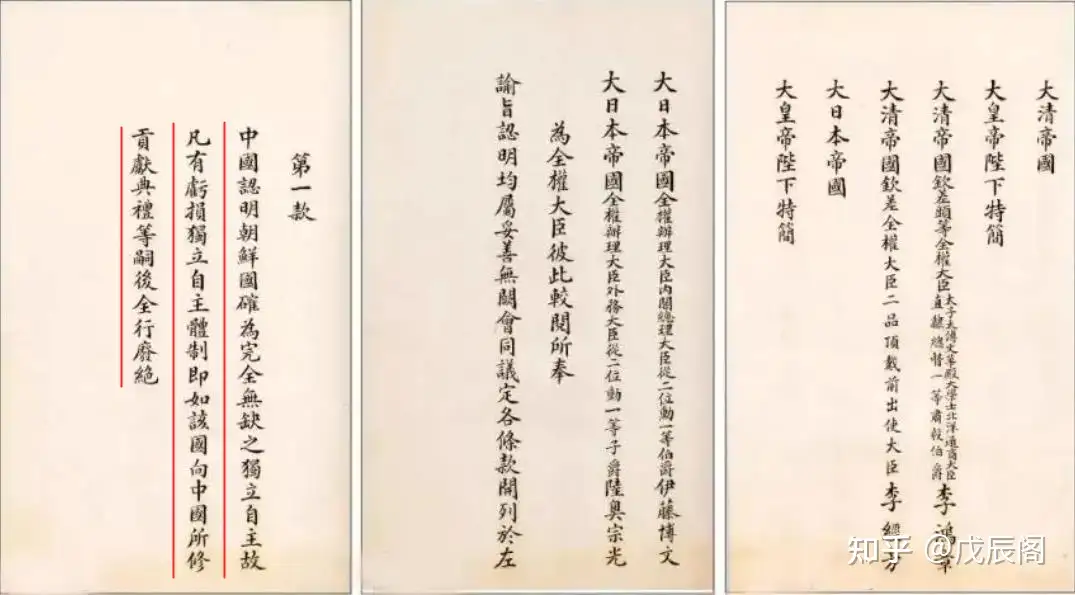 大清帝國
大皇帝陛下特簡
大清帝國欽差頭等全權大臣太子太傅文華殿大學士北洋通商大臣直隸總督一等肅毅伯爵李鴻章
大清帝國欽差全權大臣二品頂戴前出使大臣李經方
大日本帝國
大皇帝陛下特簡
大日本帝國全權辦理大臣內閣總理大臣從二位勳一等伯爵伊藤博文
大日本帝國全權辦理大臣外務大臣從二位勳一等子爵陸奧宗光
為全權大臣彼此較閱所奉
諭旨認明均屬妥善無闕會同議定各條款開列於左
第一款
中國認明朝鮮國確為完全無缺之獨立自主故
凡有虧損獨立自主體制即如該國向中國所修
貢獻典禮等嗣後全行廢絕
知乎 @戊辰阁